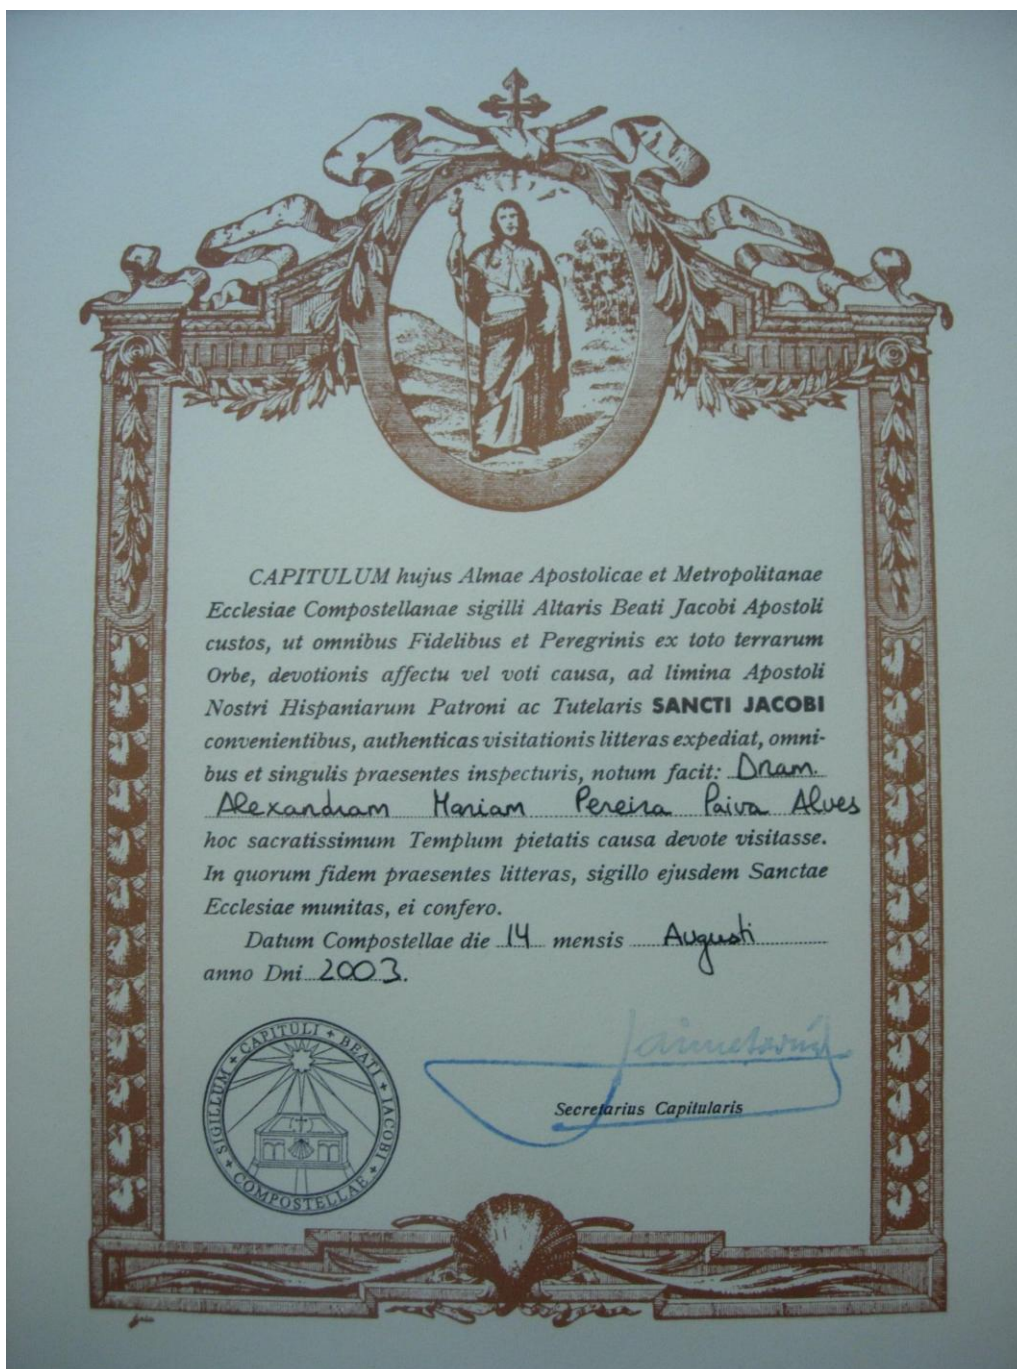 CAPITULUM hujus Almae Apostolicae et Metropolitanae
Ecclesiae Compostellanae sigilli Altaris Beati Jacobi Apostoli
custos, ut omnibus Fidelibus et Peregrinis ex toto terrarum
Orbe, devotionis affectu vel voti causa, ad limina Apostoli
Nostri Hispaniarum Patroni ac Tutelaris SANCTI JACOBI
convenientibus, authenticas visitationis litteras expediat, omni-
bus et singulis praesentes inspecturis, notum facit: Dnam.
Alexandram Mariam Pereira Paiva Alves
hoc sacratissimum Templum pietatis causa devote visitasse.
In quorum fidem praesentes litteras, sigillo ejusdem Sanctae
Ecclesiae munitas, ei confero.
Datum Compostellae die 14 mensis Augusti
anno Dni 2003.
Secretarius Capitularis
SIGILLUM + CAPITULI + BEATI + IACOBI + COMPOSTELLAE +